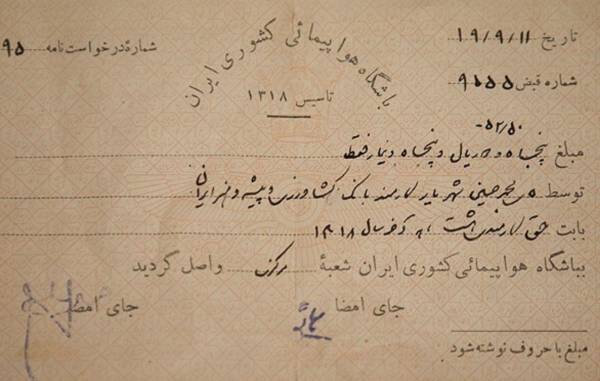 باشگاه هواپیمائی کشوری ایران
تاسیس ۱۳۱۸
تاریخ ۱۹/۹/۱۱
شمارهٔ درخواست نامه ۹۵
شماره قبض ۹۰۵۵
۵۲/۵۰
مبلغ پنجاه و دو ریال و پنجاه دینار فقط
توسط محمد حسین شهریار کارمند بانک کشاورزی و پیشه و هنر ایران
بابت حق کارمندی ۱۳۱۸
بباشگاه هواپیمائی کشوری ایران شعبهٔ مرکزی واصل گردید
جای امضا جای امضا
مبلغ با حروف نوشته شود